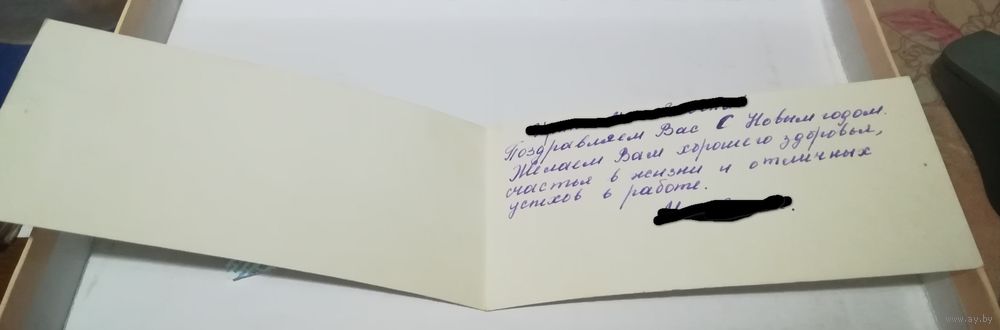 Поздравляем Вас С Новым годом.
Желаем Вам хорошего здоровья,
счастья в жизни и отличных
успехов в работе.
www.ay.by